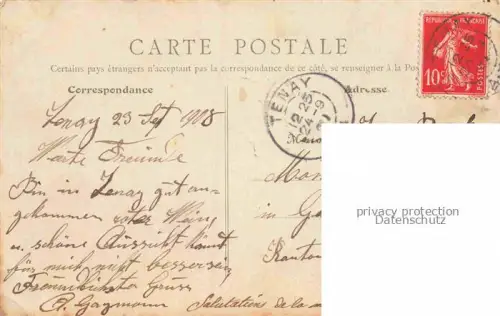 CARTE POSTALE
Certains pays étrangers n'acceptant pas la correspondance de ce côté, se renseigner à la Pos
Correspondance
Adresse
RÉPUBLIQUE FRANÇAISE
10c
POSTES
TENAY
12 25
24-9
Tenay 23 Sept 1908
Werte Freunde
Bin in Tenay gut an-
gekommen roter Wein
u. schöne Aussicht könnt
für mich nicht besser sein
Freundlichster Gruss
Salutations de la
Mon
in Ga
Kanton
privacy protection
Datenschutz